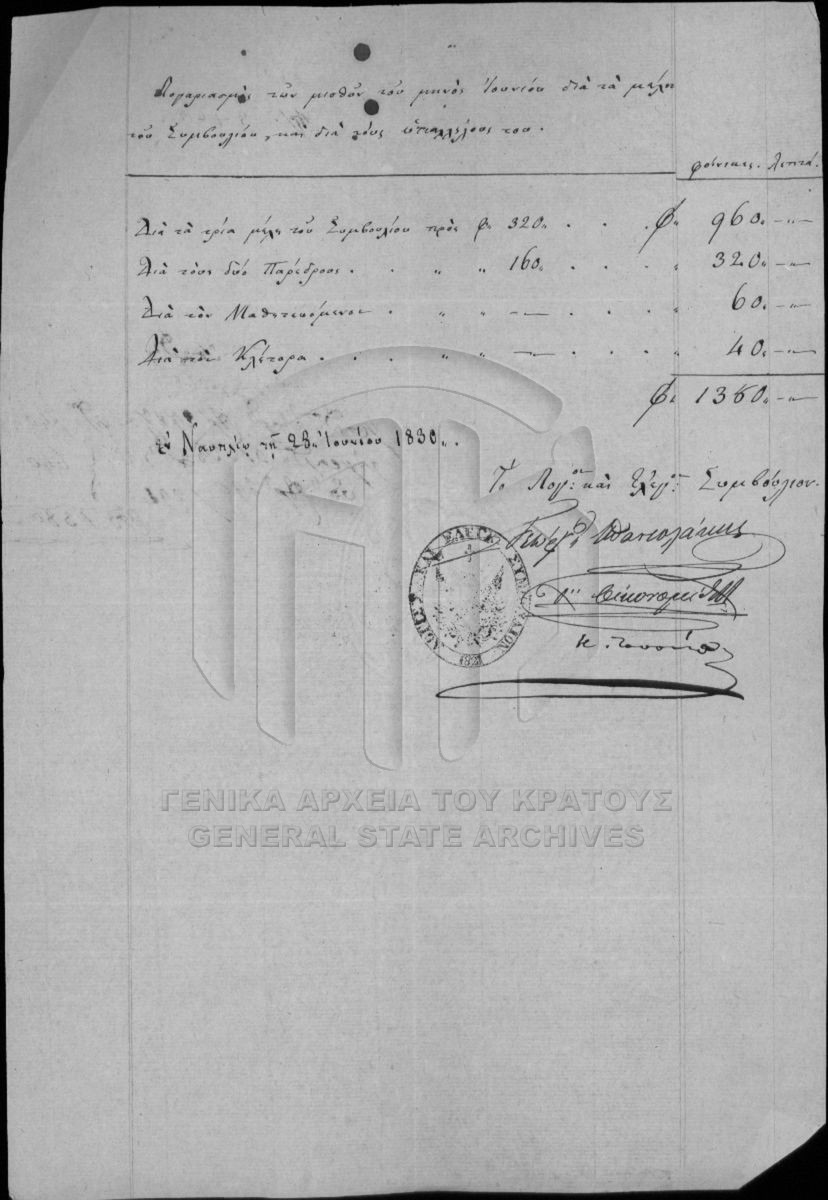 Λογαριασμὸς τῶν μισθῶν τοῦ μηνὸς Ἰουνίου διὰ τὰ μέλη
τοῦ Συμβουλίου, καὶ διὰ τοὺς ὑπαλλήλους του.
φοίνικες. λεπτά.
Διὰ τὰ τρία μέλη τοῦ Συμβουλίου πρὸς φ 320„ . . . φ„ 960„ —„—
Διὰ τοὺς δύο Παρέδρους . . „ „ 160„ . . . „ 320„ —„—
Διὰ τὸν Μαθητευόμενον . „ „ —„— . . . „ 60„ —„—
Διὰ τὸν Κλήτορα . . . „ „ —„— . . . „ 40„ —„—
φ„ 1380„ —„—
ἐν Ναυπλίῳ τῇ 28„ Ἰουνίου 1830„.
Τὸ Λογ:ον καὶ Ἐλεγ:ον Συμβούλιον.
ΛΟΓΙΣΤ. ΚΑΙ ΕΛΕΓΚ. ΣΥΜΒΟΥΛΙΟΝ
Γεώργ:ος
Οἰκονομίδης
ΓΕΝΙΚΑ ΑΡΧΕΙΑ ΤΟΥ ΚΡΑΤΟΥΣ
GENERAL STATE ARCHIVES